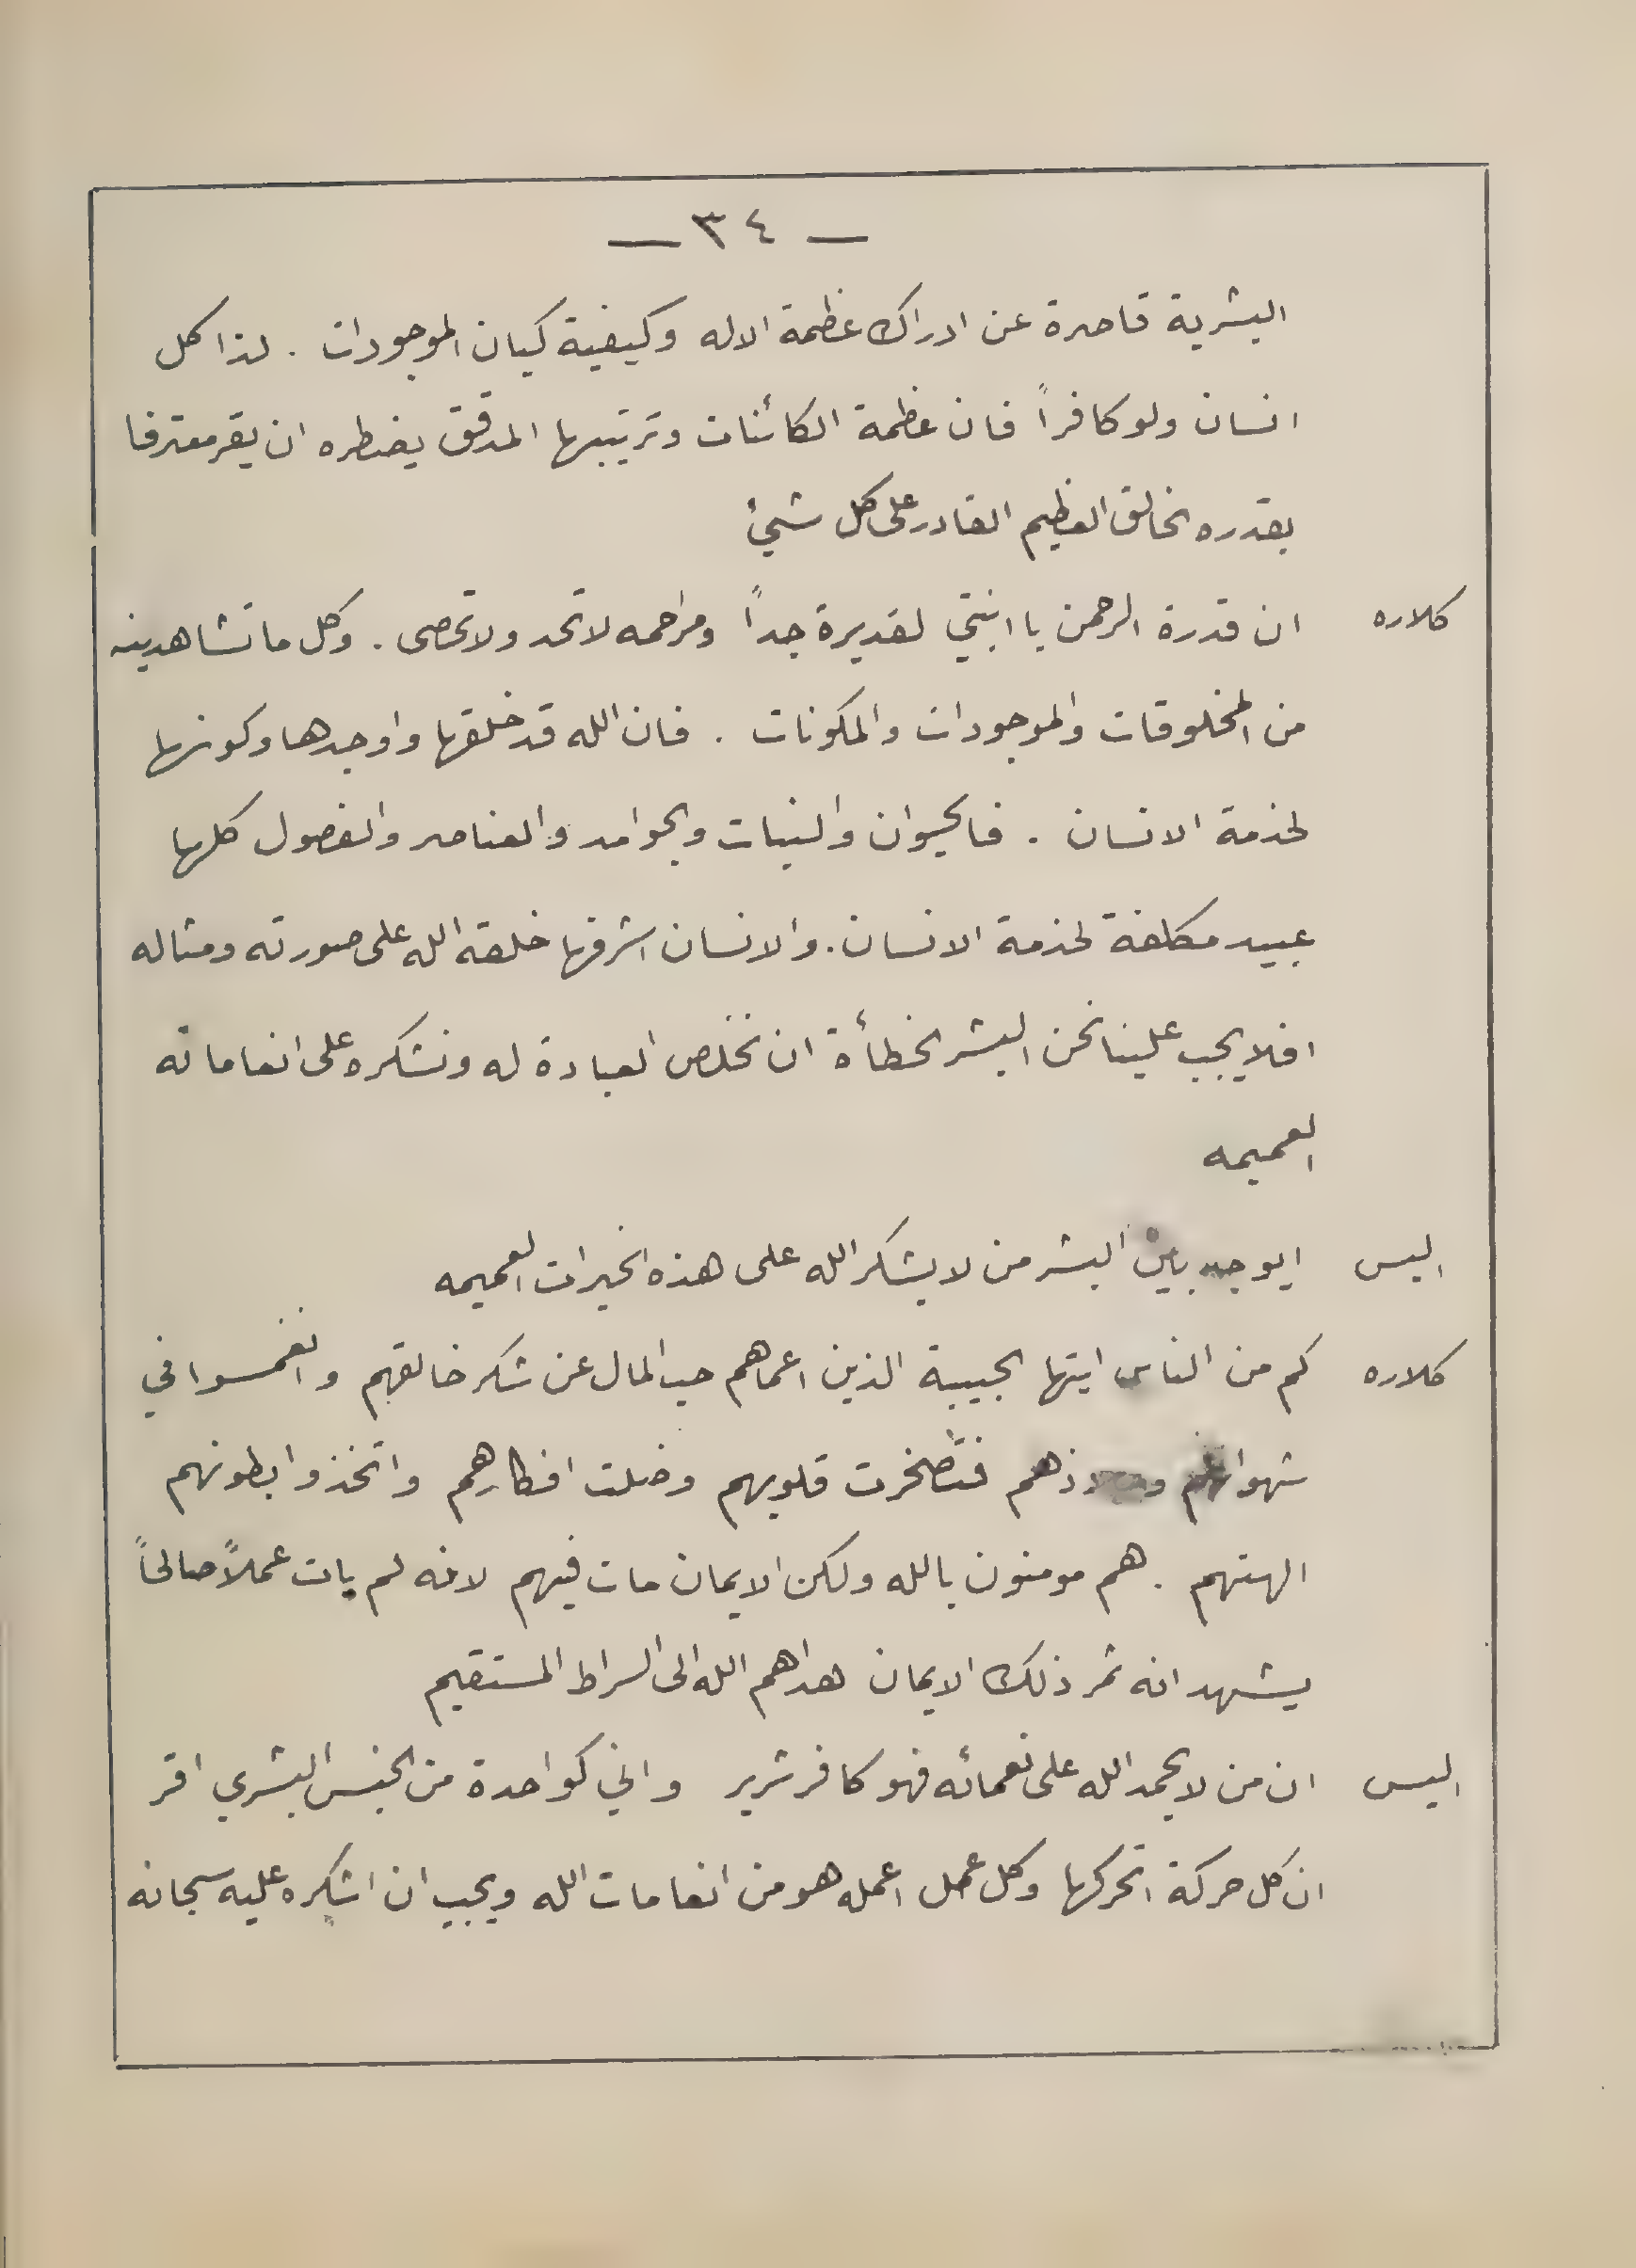 — ٣٤ —
البشرية قاصرة عن ادراك عظمة الاله وكيفية كيان الموجودات . لذا كل
انسان ولو كافراً فان عظمة الكائنات وترتيبها المدقق يضطره ان يقر معترفا
بقدره الخالق العظيم القادر على كل شيئ
كلاره ان قدرة الرحمن يا ابنتي لقديرة جداً ومراحمه لا تحد ولا تحصى . وكل ما تشاهدينه
من المخلوقات والموجودات والمكونات . فان الله قد خلقها واوجدها وكونها
لخدمة الانسان . فالحيوان والنبات والجوامد والعناصر والفصول كلها
عبيد مكلفة لخدمة الانسان . والانسان اشرفها خلقه الله على صورته ومثاله
افلا يجب علينا نحن البشر الخطأة ان نخلص العبادة له ونشكره على انعاماته
العميمه
اليس ايوجد بين البشر من لا يشكر الله على هذه الخيرات العميمه
كلاره كم من الناس ايتها الحبيبة الذين اعماهم حب المال عن شكر خالقهم وانغمسوا في
شهواتهم وملاذهم فتصخرت قلوبهم وضلت افكارهم واتخذوا بطونهم
الهتهم . هم مومنون بالله ولكن الايمان مات فيهم لانه لم يات عملاً صالحاً
يشهد انه ثمر ذلك الايمان هداهم الله الى السراط المستقيم
اليس ان من لا يحمد الله على نعمائه فهو كافر شرير واني كواحدة من الجنس البشري اقر
ان كل حركة اتحركها وكل عمل اعمله هو من انعامات الله ويجب ان اشكره عليه سبحانه